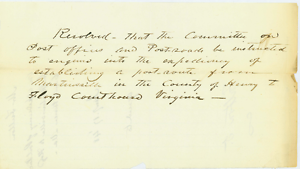 Resolved - That the Committee on
Post offices and Postroads be instructed
to enquire into the expediency of
establishing a post route from
in the County of Henry to
Floyd Courthouse Virginia —